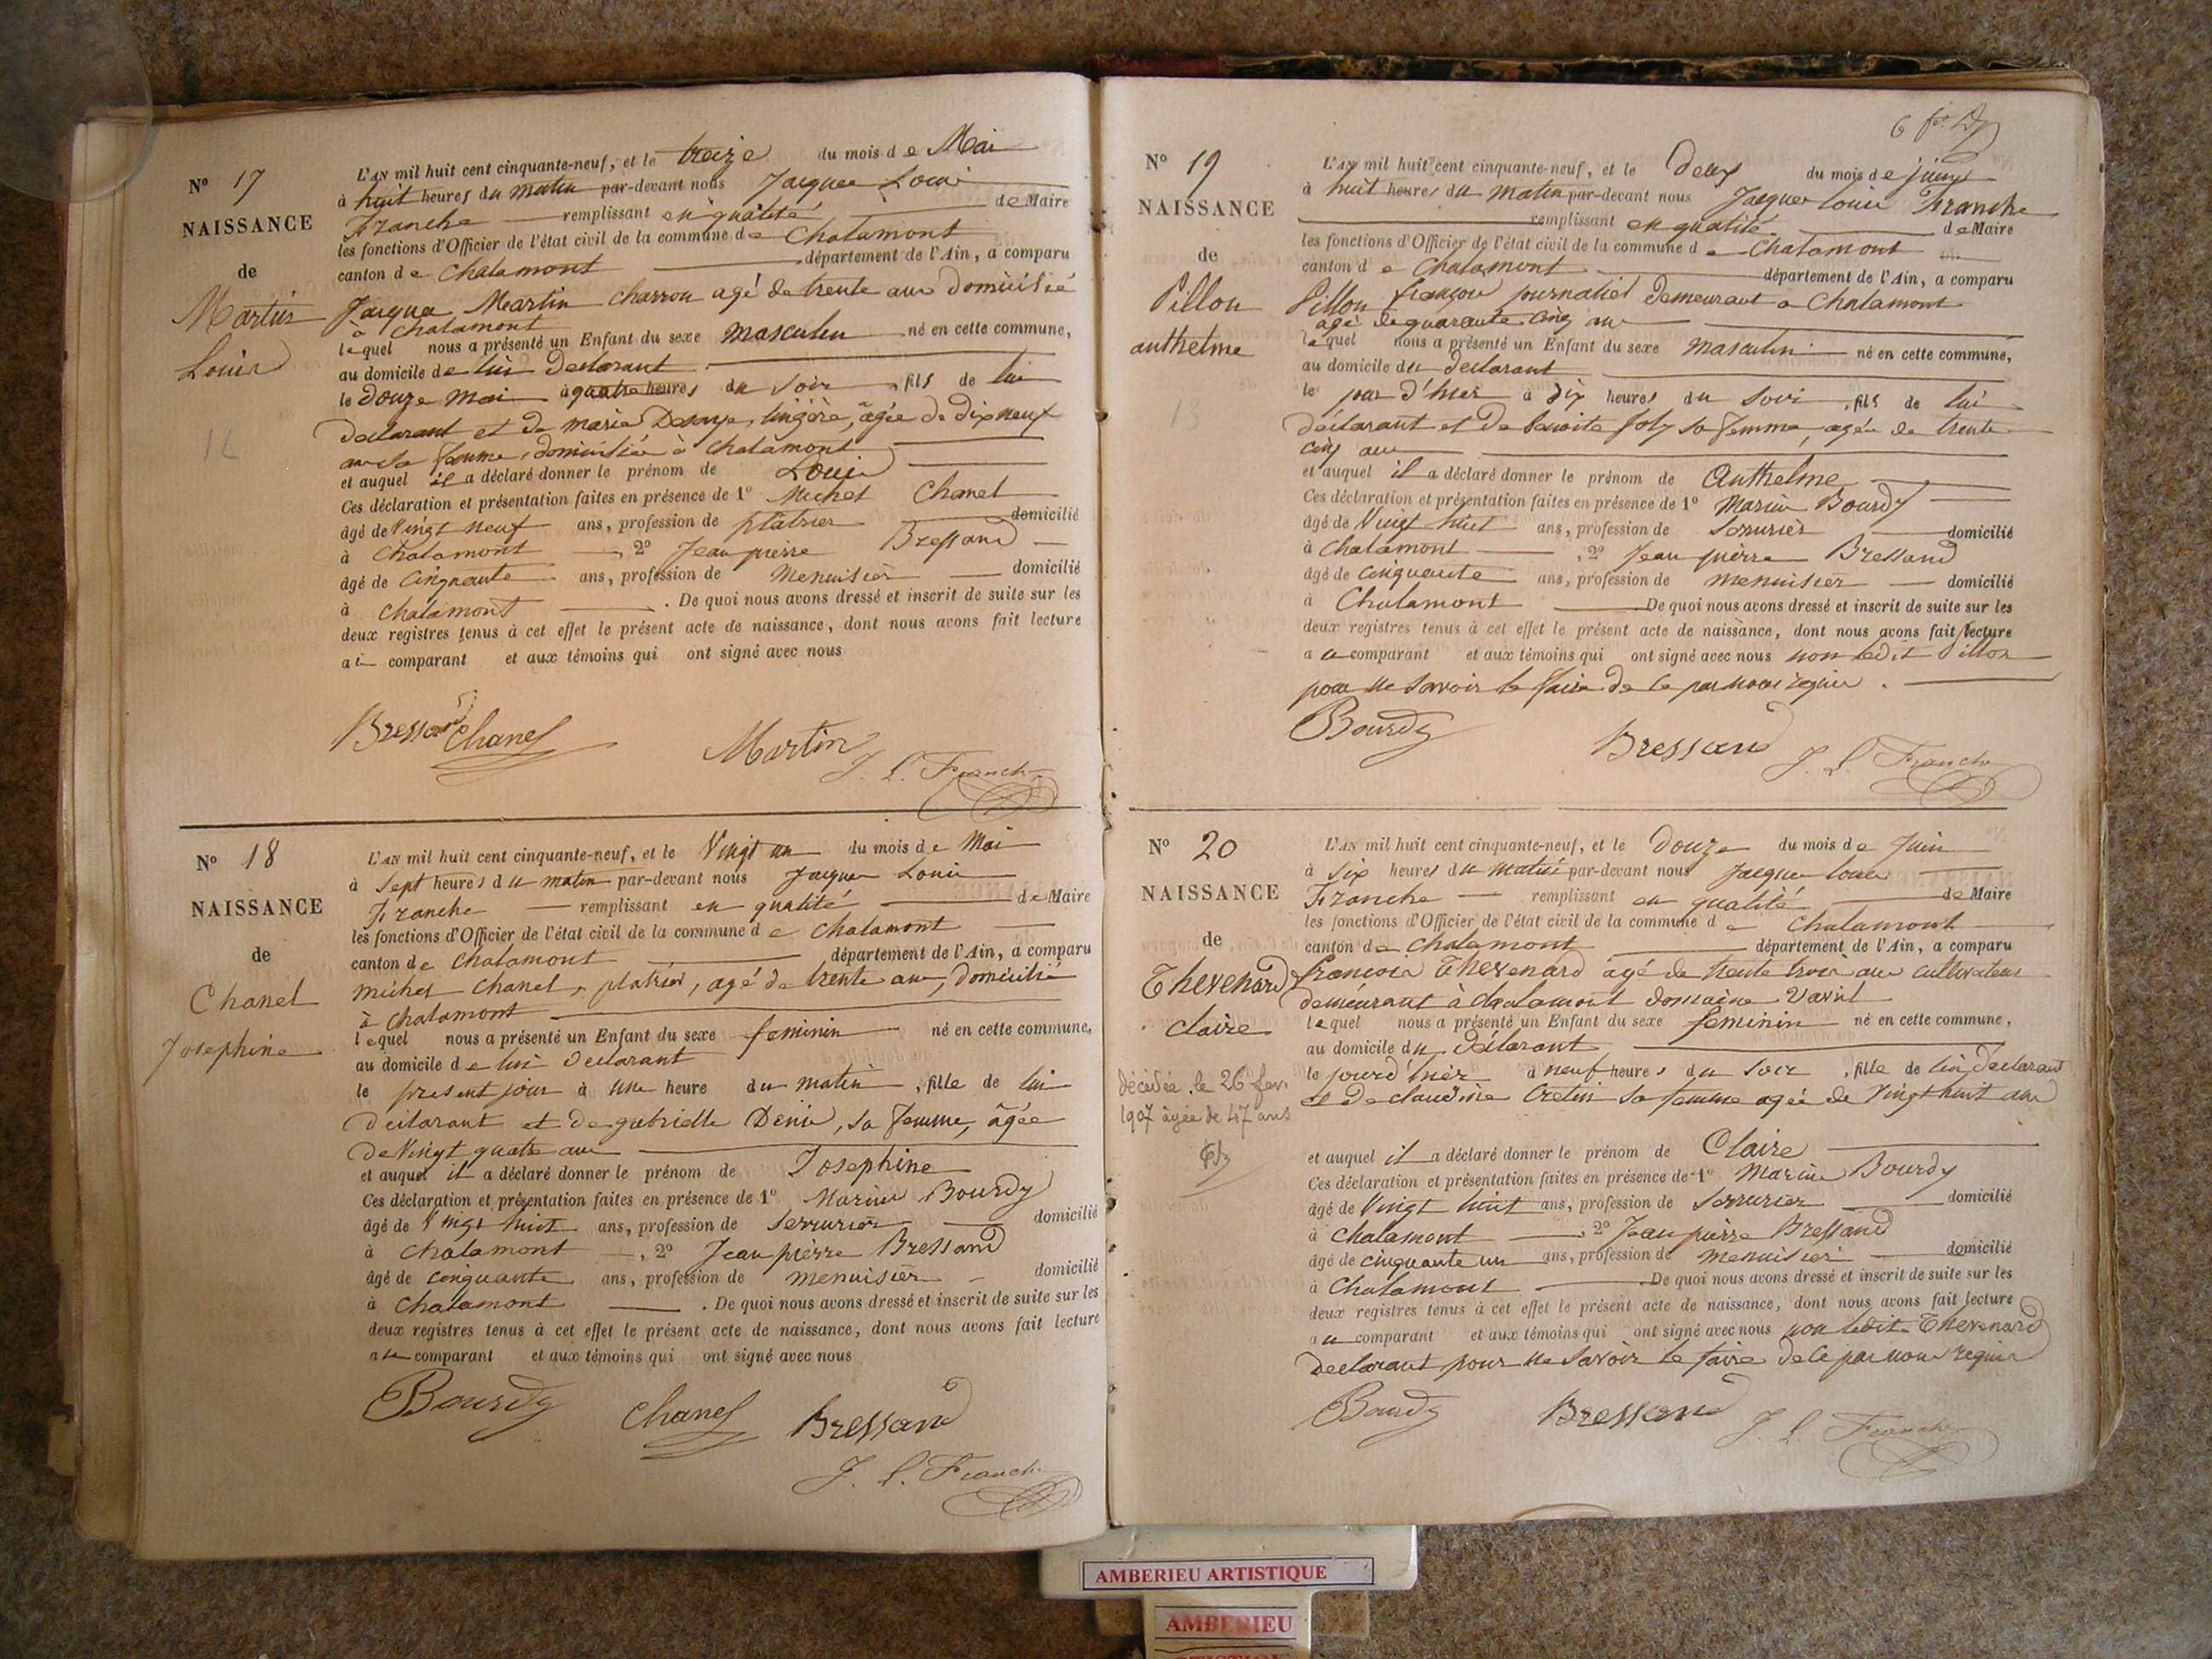 N° 17
NAISSANCE
de
Martin
Louis
12
L'AN mil huit cent cinquante-neuf, et le treize du mois de Mai
à huit heures du matin par-devant nous Jacques Louis
Franche remplissant en qualité de Maire
les fonctions d'Officier de l'état civil de la commune de Chalamont
canton de Chalamont département de l'Ain, a comparu
Jacques Martin charron agé de trente ans domicilié
à Chalamont
lequel nous a présenté un Enfant du sexe masculin né en cette commune,
au domicile de lui Déclarant
le Douze Mai à quatre heures du soir, fils de lui
déclarant et de marie lingère, âgée de dix neuf
ans sa femme, domiciliée à Chalamont
et auquel il a déclaré donner le prénom de Louis
Ces déclaration et présentation faites en présence de 1° Michel Chanel
âgé de Vingt neuf ans, profession de platrier domicilié
à Chalamont, 2° Jean pierre Bressand
âgé de Cinquante ans, profession de Menuisier domicilié
à Chalamont. De quoi nous avons dressé et inscrit de suite sur les
deux registres tenus à cet effet le présent acte de naissance, dont nous avons fait lecture
au comparant et aux témoins qui ont signé avec nous
Bressand Chanel Martin
J. L. Franche
N° 18
NAISSANCE
de
Chanel
Josephine
L'AN mil huit cent cinquante-neuf, et le Vingt un du mois de Mai
à Sept heures du matin par-devant nous Jacques Louis
Franche remplissant en qualité de Maire
les fonctions d'Officier de l'état civil de la commune de Chalamont
canton de Chalamont département de l'Ain, a comparu
michel Chanel, platrier, agé de trente ans, domicilié
à Chalamont
lequel nous a présenté un Enfant du sexe feminin né en cette commune,
au domicile de lui Déclarant
le présent jour à une heure du matin, fille de lui
déclarant et de gabrielle Denis, sa femme, âgée
de Vingt quatre ans
et auquel il a déclaré donner le prénom de Josephine
Ces déclaration et présentation faites en présence de 1° Marius Bourdy
âgé de Vingt huit ans, profession de Serrurier domicilié
à Chalamont, 2° Jean pierre Bressand
âgé de cinquante ans, profession de menuisier domicilié
à Chalamont. De quoi nous avons dressé et inscrit de suite sur les
deux registres tenus à cet effet le présent acte de naissance, dont nous avons fait lecture
au comparant et aux témoins qui ont signé avec nous
Bourdy Chanel Bressand
J. L. Franche
6
N° 19
NAISSANCE
de
Pillon
anthelme
13
L'AN mil huit cent cinquante-neuf, et le Deux du mois de juin
à huit heures du matin par-devant nous Jacques Louis Franche
remplissant en qualité de Maire
les fonctions d'Officier de l'état civil de la commune de Chalamont
canton de Chalamont département de l'Ain, a comparu
Pillon françois journalier demeurant a Chalamont
agé de quarante cinq ans
lequel nous a présenté un Enfant du sexe masculin né en cette commune,
au domicile du déclarant
le jour d'hier à dix heures du soir, fils de lui
déclarant et de Benoite Joly sa femme, agée de trente
cinq ans
et auquel il a déclaré donner le prénom de Anthelme
Ces déclaration et présentation faites en présence de 1° Marius Bourdy
âgé de Vingt huit ans, profession de Serrurier domicilié
à Chalamont, 2° Jean pierre Bressand
âgé de cinquante ans, profession de menuisier domicilié
à Chalamont De quoi nous avons dressé et inscrit de suite sur les
deux registres tenus à cet effet le présent acte de naissance, dont nous avons fait lecture
au comparant et aux témoins qui ont signé avec nous non ledit Pillon
pour ne savoir le faire de ce par nous requis.
Bourdy Bressand J. L. Franche
N° 20
NAISSANCE
de
Thevenard
Claire
décédée le 26 fev.
1907 âgée de 47 ans
L'AN mil huit cent cinquante-neuf, et le Douze du mois de Juin
à six heures du matin par-devant nous Jacques Louis
Franche remplissant en qualité de Maire
les fonctions d'Officier de l'état civil de la commune de Chalamont
canton de Chalamont département de l'Ain, a comparu
françois Thevenard agé de trente trois ans cultivateur
demeurant à chalamont domaine Vavril
lequel nous a présenté un Enfant du sexe feminin né en cette commune,
au domicile du déclarant
le jour d'hier à neuf heures du soir, fille de lui déclarant
et de claudine Cretin sa femme agée de Vingt huit ans
et auquel il a déclaré donner le prénom de Claire
Ces déclaration et présentation faites en présence de 1° Marius Bourdy
âgé de Vingt huit ans, profession de Serrurier domicilié
à Chalamont, 2° Jean pierre Bressand
âgé de cinquante un ans, profession de menuisier domicilié
à Chalamont. De quoi nous avons dressé et inscrit de suite sur les
deux registres tenus à cet effet le présent acte de naissance, dont nous avons fait lecture
au comparant et aux témoins qui ont signé avec nous non ledit Thevenard
declarant pour ne savoir le faire de ce par nous requis
Bourdy Bressand J. L. Franche
AMBERIEU ARTISTIQUE
AMBERIEU